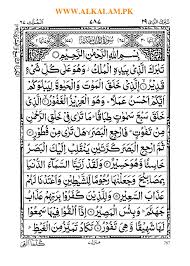 WWW.ALKALAM.PK
تبٰرك الذی ٢٩
٧٨٧
الملك ٦٧
بِسْمِ اللهِ الرَّحْمٰنِ الرَّحِیْمِ
تَبٰرَكَ الَّذِیْ بِیَدِهِ الْمُلْكُ وَهُوَ عَلٰی كُلِّ شَیْءٍ
قَدِیْرُ الَّذِیْ خَلَقَ الْمَوْتَ وَالْحَیٰوةَ لِیَبْلُوَكُمْ
اَیُّكُمْ اَحْسَنُ عَمَلًا وَهُوَ الْعَزِیْزُ الْغَفُوْرُ الَّذِیْ
خَلَقَ سَبْعَ سَمٰوٰتٍ طِبَاقًا مَا تَرٰی فِیْ خَلْقِ الرَّحْمٰنِ
مِنْ تَفٰوُتٍ فَارْجِعِ الْبَصَرَ هَلْ تَرٰی مِنْ فُطُوْرٍ
ثُمَّ ارْجِعِ الْبَصَرَ كَرَّتَیْنِ یَنْقَلِبْ اِلَیْكَ الْبَصَرُ
خَاسِئًا وَّهُوَ حَسِیْرٌ وَلَقَدْ زَیَّنَّا السَّمَآءَ الدُّنْیَا
بِمَصَابِیْحَ وَجَعَلْنٰهَا رُجُوْمًا لِّلشَّیٰطِیْنِ وَاَعْتَدْنَا لَهُمْ
عَذَابَ السَّعِیْرِ وَلِلَّذِیْنَ كَفَرُوْا بِرَبِّهِمْ عَذَابُ
جَهَنَّمَ وَبِئْسَ الْمَصِیْرُ اِذَا اُلْقُوْا فِیْهَا سَمِعُوْا
لَهَا شَهِیْقًا وَّهِیَ تَفُوْرُ تَكَادُ تَمَیَّزُ مِنَ الْغَیْظِ
كُلَّمَا اُلْقِیَ